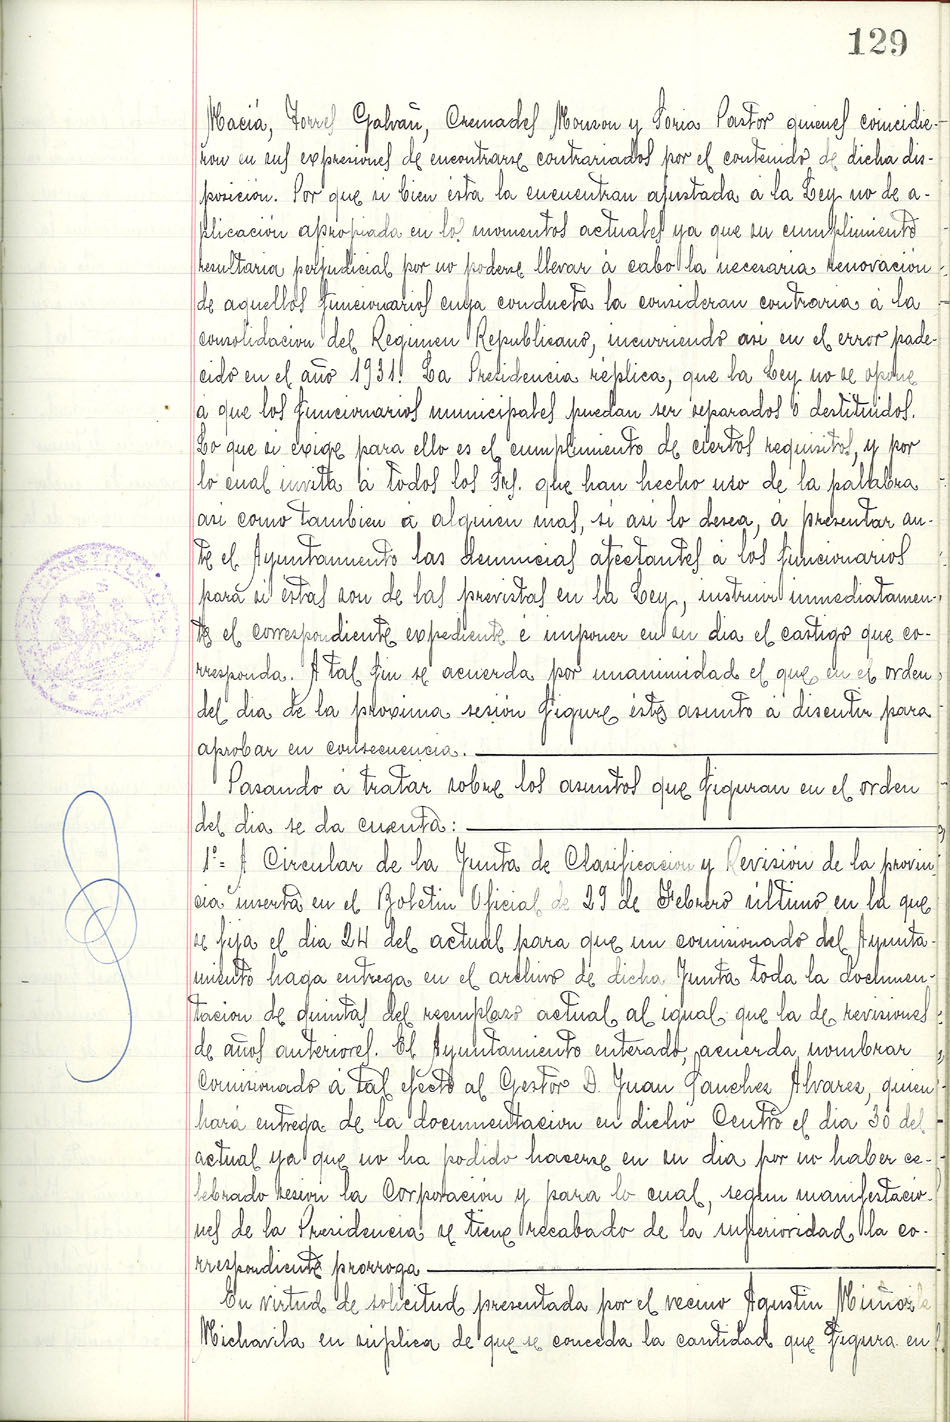 129
Maciá, Torres Galvañ, Cremades Monzon y Soria Pastor quienes coincidie-
ron en sus expresiones de encontrarse contrariados por el contenido de dicha dis-
posición. Por que si bien ésta la encuentran ajustada á la Ley no de a-
plicación apropiada en los momentos actuales ya que su cumplimiento
resultaria perjudicial por no poderse llevar á cabo la necesaria renovación
de aquellos funcionarios cuya conducta la consideran contraria á la
consolidación del Regimen Republicano, incurriendo asi en el error pade-
cido en el año 1931. La Presidencia réplica, que la Ley no se opone
á que los funcionarios municipales puedan ser separados ó destituidos.
Lo que si exige para ello es el cumplimiento de ciertos requisitos, y por
lo cual invita á todos los Srs. que han hecho uso de la palabra
asi como tambien á alguien mas, si asi lo desea, á presentar an-
te el Ayuntamiento las denuncias afectantes á los funcionarios
para si éstas son de las previstas en la Ley, instruir inmediatamen-
te el correspondiente expediente é imponer en su dia el castigo que co-
rresponda. A tal fin se acuerda por unanimidad el que en el orden
del dia de la proxima sesión figure éste asunto á discutir para
aprobar en consecuencia.
Pasando á tratar sobre los asuntos que figuran en el orden
del dia se da cuenta:
1º = A Circular de la Junta de Clasificacion y Revisión de la provin-
cia inserta en el Boletin Oficial de 29 de Febrero último en la que
se fija el dia 24 del actual para que un comisionado del Ayunta-
miento haga entrega en el archivo de dicha Junta toda la documen-
tacion de quintas del reemplazo actual al igual que la de revisiones
de años anteriores. El Ayuntamiento enterado, acuerda nombrar
Comisionado á tal efecto al Gestor D. Juan Sanchez Alvarez, quien
hará entrega de la documentacion en dicho Centro el dia 30 del
actual ya que no ha podido hacerse en su dia por no haber ce-
lebrado sesion la Corporación y para lo cual, segun manifestacio-
nes de la Presidencia se tiene recabado de la superioridad la co-
rrespondiente prorroga
En virtud de solicitud presentada por el vecino Agustin Muñoz
Michavila en súplica de que se conceda la cantidad que figura en